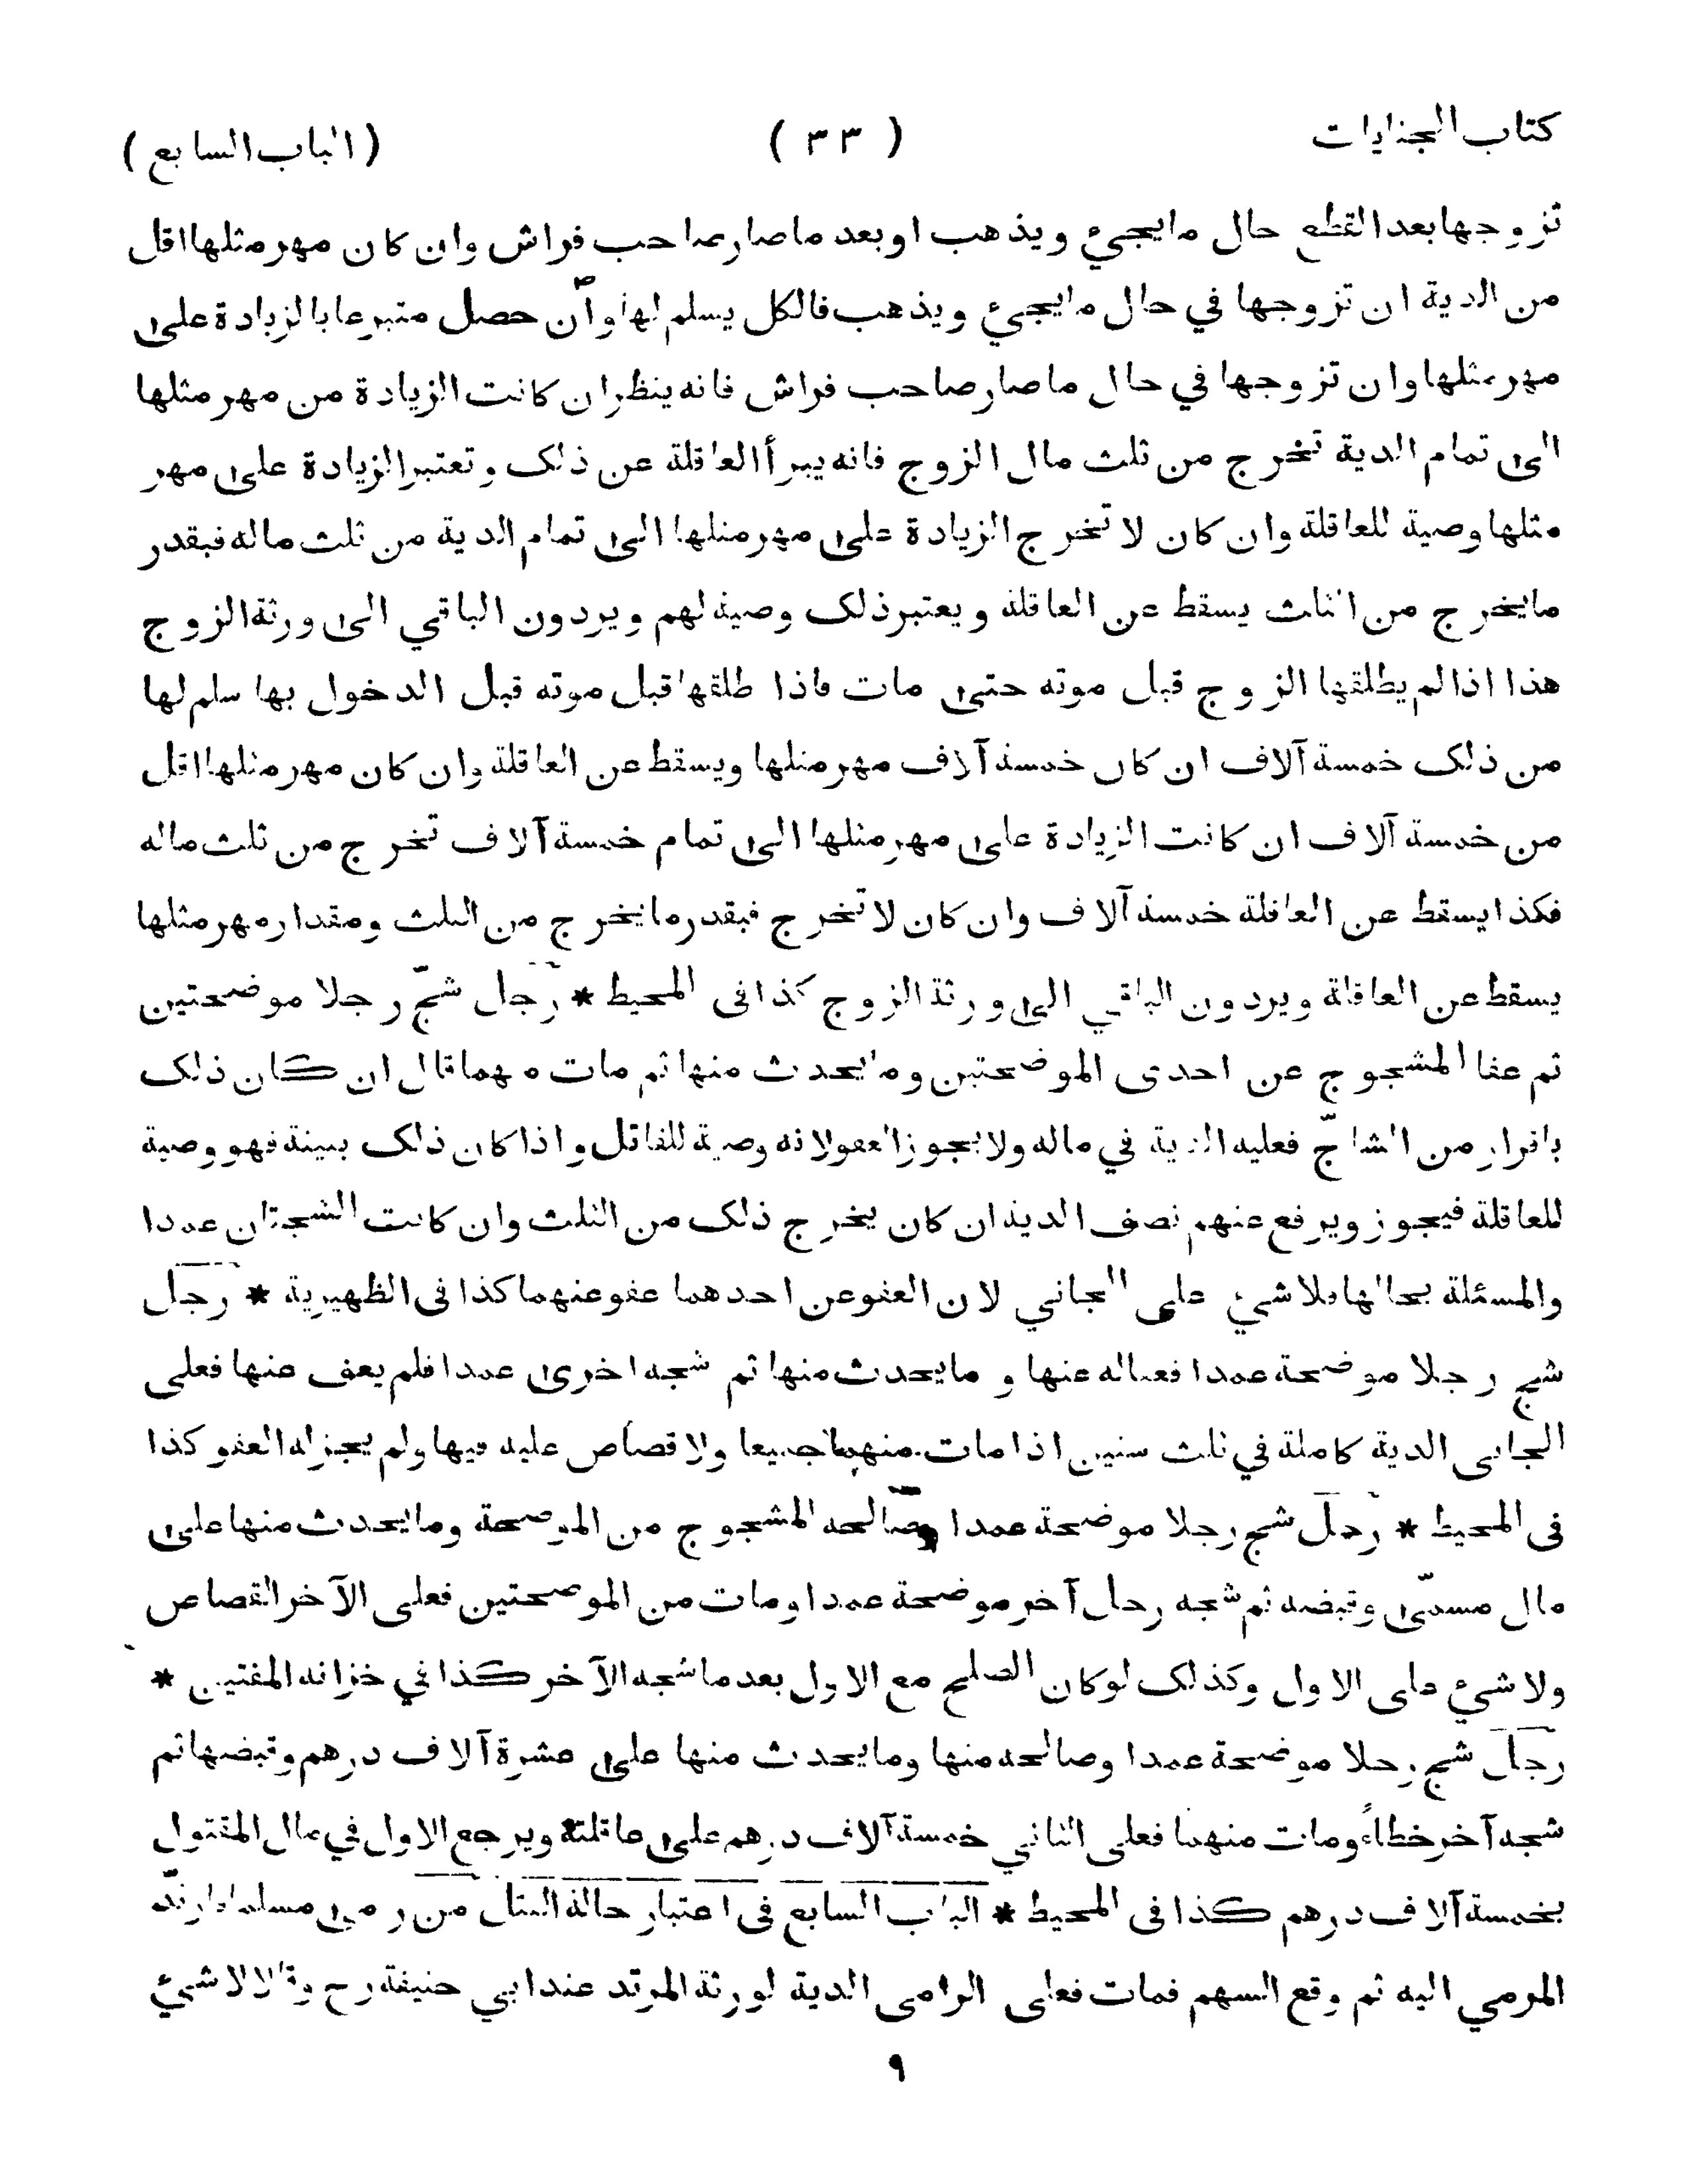 كتاب الجنايات
( ٣٣ )
( الباب السابع )
تزوجها بعد القطع حال ما يجيئ ويذهب او بعد ما صار صاحب فراش وان كان مهر مثلها اقل
من الدية ان تزوجها في حال ما يجيئ ويذهب فالكل يسلم لها وان حصل متبرعا بالزيادة على
مهر مثلها وان تزوجها في حال ما صار صاحب فراش فانه ينظر ان كانت الزيادة من مهر مثلها
الى تمام الدية تخرج من ثلث مال الزوج فانه يبرأ العاقلة عن ذلك وتعتبر الزيادة على مهر
مثلها وصية للعاقلة وان كان لا تخرج الزيادة على مهر مثلها الى تمام الدية من ثلث ماله فبقدر
ما يخرج من الثلث يسقط عن العاقلة ويعتبر ذلك وصية لهم ويردون الباقي الى ورثة الزوج
هذا اذا لم يطلقها الزوج قبل موته حتى مات فاذا طلقها قبل موته قبل الدخول بها سلم لها
من ذلك خمسة آلاف ان كان خمسة آلاف مهر مثلها ويسقط عن العاقلة وان كان مهر مثلها اقل
من خمسة آلاف ان كانت الزيادة على مهر مثلها الى تمام خمسة آلاف تخرج من ثلث ماله
فكذا يسقط عن العاقلة خمسة آلاف وان كان لا تخرج فبقدر ما يخرج من الثلث ومقدار مهر مثلها
يسقط عن العاقلة ويردون الباقي الى ورثة الزوج كذا فى المحيط * رجل شجّ رجلا موضحتين
ثم عفا المشجوج عن احدى الموضحتين وما يحدث منها ثم مات منهما قال ان كان ذلك
باقرار من الشاجّ فعليه الدية في ماله ولا يجوز العفو لانه وصية للقاتل واذا كان ذلك ببينة فهو وصية
للعاقلة فيجوز ويرفع عنهم نصف الدية ان كان يخرج ذلك من الثلث وان كانت الشجتان عمدا
والمسئلة بحالها فلا شيئ على الجاني لان العفو عن احدهما عفو عنهما كذا فى الظهيرية * رجل
شج رجلا موضحة عمدا فعفا له عنها و ما يحدث منها ثم شجه اخرى عمدا فلم يعف عنها فعلى
الجانى الدية كاملة في ثلث سنين اذا مات منهما جميعا ولا قصاص عليه فيها ولم يجز له العفو كذا
فى المحيط * رجل شج رجلا موضحة عمدا وصالحه المشجوج من الموضحة وما يحدث منها على
مال مسمّى وقبضه ثم شجه رجل آخر موضحة عمدا ومات من الموضحتين فعلى الآخر القصاص
ولا شيئ على الاول وكذلك لو كان الصلح مع الاول بعد ما شجه الآخر كذا في خزانه المفتين *
رجل شج رجلا موضحة عمدا وصالحه منها وما يحدث منها على عشرة آلاف درهم وقبضها ثم
شجه آخر خطاءً ومات منهما فعلى الثاني خمسة آلاف درهم على عاقلته ويرجع الاول في مال المقتول
بخمسة آلاف درهم كذا فى المحيط * الباب السابع فى اعتبار حالة القتل من رمى مسلما فارتدّ
المرمي اليه ثم وقع السهم فمات فعلى الرامى الدية لورثة المرتد عند ابي حنيفة رح وقالا لا شيئ
٩